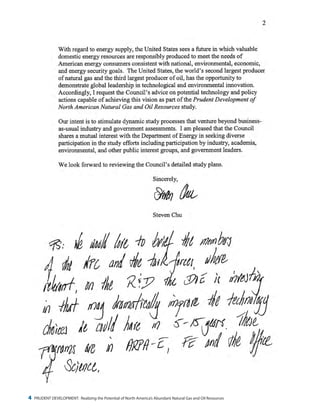 2
With regard to energy supply, the United States sees a future in which valuable
domestic energy resources are responsibly produced to meet the needs of
American energy consumers consistent with national, environmental, economic,
and energy security goals.  The United States, the world's second largest producer
of natural gas and the third largest producer of oil, has the opportunity to
demonstrate global leadership in technological and environmental innovation.
Accordingly, I request the Council's advice on potential technology and policy
actions capable of achieving this vision as part of the Prudent Development of
North American Natural Gas and Oil Resources study.
Our intent is to stimulate dynamic study processes that venture beyond business-
as-usual industry and government assessments.  I am pleased that the Council
shares a mutual interest with the Department of Energy in seeking diverse
participation in the study efforts including participation by industry, academia,
environmental, and other public interest groups, and government leaders.
We look forward to reviewing the Council's detailed study plans.
Sincerely,
Steven Chu
Steven Chu
PS: We would love to brief the members
of the NPC and the task forces, where
relevant, on the R&D the DOE is investing
in that may dramatically improve the technology
choices we could have in 5-15 years. These
programs are in ARPA-E, FE and the Office
of Science.
4 PRUDENT DEVELOPMENT: Realizing the Potential of North America's Abundant Natural Gas and Oil Resources